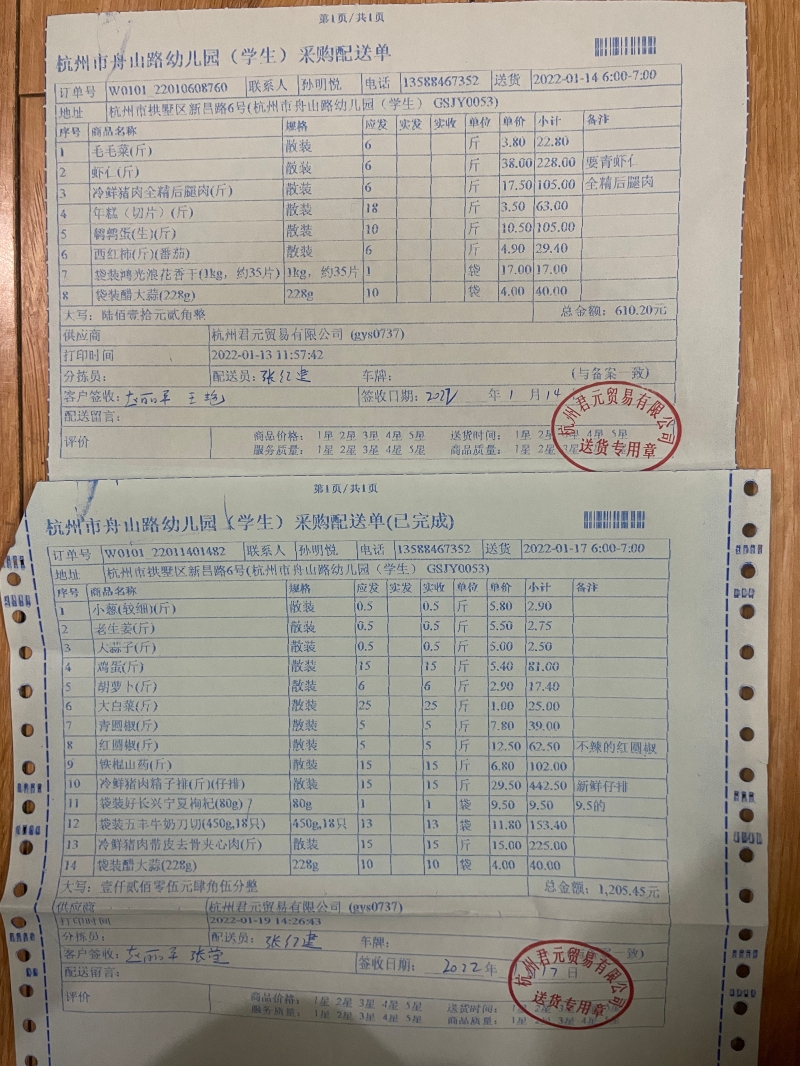 第1页/共1页
杭州市舟山路幼儿园（学生）采购配送单
订单号 W0101_22010608760 联系人 孙明悦 电话 13588467352 送货 2022-01-14 6:00-7:00
地址 杭州市拱墅区新昌路6号(杭州市舟山路幼儿园（学生）GSJY0053)
序号 商品名称 规格 应发 实发 实收 单位 单价 小计 备注
1 毛毛菜(斤) 散装 6 斤 3.80 22.80
2 虾仁(斤) 散装 6 斤 38.00 228.00 要青虾仁
3 冷鲜猪肉全精后腿肉(斤) 散装 6 斤 17.50 105.00 全精后腿肉
4 年糕（切片）(斤) 散装 18 斤 3.50 63.00
5 鹌鹑蛋(生)(斤) 散装 10 斤 10.50 105.00
6 西红柿(斤)(番茄) 散装 6 斤 4.90 29.40
7 袋装鸿光浪花香干(1kg，约35片) 1kg，约35片 1 袋 17.00 17.00
8 袋装醋大蒜(228g) 228g 10 袋 4.00 40.00
大写：陆佰壹拾元贰角整 总金额：610.20元
供应商 杭州君元贸易有限公司 (gys0737)
打印时间 2022-01-13 11:57:42
分拣员： 配送员：张红建 车牌： (与备案一致)
客户签收：赵丽平 王艳 签收日期：2022 年 1 月 14
配送留言：
评价 商品价格： 1星 2星 3星 4星 5星 送货时间： 1星 2星 4星 5星
服务质量： 1星 2星 3星 4星 5星 商品质量： 1星 2星
杭州君元贸易有限公司
送货专用章
第1页/共1页
杭州市舟山路幼儿园（学生）采购配送单(已完成)
订单号 W0101_22011401482 联系人 孙明悦 电话 13588467352 送货 2022-01-17 6:00-7:00
地址 杭州市拱墅区新昌路6号(杭州市舟山路幼儿园（学生）GSJY0053)
序号 商品名称 规格 应发 实发 实收 单位 单价 小计 备注
1 小葱(较细)(斤) 散装 0.5 0.5 斤 5.80 2.90
2 老生姜(斤) 散装 0.5 0.5 斤 5.50 2.75
3 大蒜子(斤) 散装 0.5 0.5 斤 5.00 2.50
4 鸡蛋(斤) 散装 15 15 斤 5.40 81.00
5 胡萝卜(斤) 散装 6 6 斤 2.90 17.40
6 大白菜(斤) 散装 25 25 斤 1.00 25.00
7 青圆椒(斤) 散装 5 5 斤 7.80 39.00
8 红圆椒(斤) 散装 5 5 斤 12.50 62.50 不辣的红圆椒
9 铁棍山药(斤) 散装 15 15 斤 6.80 102.00
10 冷鲜猪肉精子排(斤)(仔排) 散装 15 15 斤 29.50 442.50 新鲜仔排
11 袋装好长兴宁夏枸杞(80g) 80g 1 1 袋 9.50 9.50 9.5的
12 袋装五丰牛奶刀切(450g,18只) 450g,18只 13 13 袋 11.80 153.40
13 冷鲜猪肉带皮去骨夹心肉(斤) 散装 15 15 斤 15.00 225.00
14 袋装醋大蒜(228g) 228g 10 10 袋 4.00 40.00
大写：壹仟贰佰零伍元肆角伍分整 总金额：1,205.45元
供应商 杭州君元贸易有限公司 (gys0737)
打印时间 2022-01-19 14:26:43
分拣员： 配送员：张红建 车牌： 一致)
客户签收：赵丽平 张莹 签收日期： 2022 年 17 日
配送留言：
评价 商品价格： 1星 2星 3星 4星 5星 送货时间： 1星
服务质量： 1星 2星 3星 4星 5星 商品质量： 1星
杭州君元贸易有限公司
送货专用章